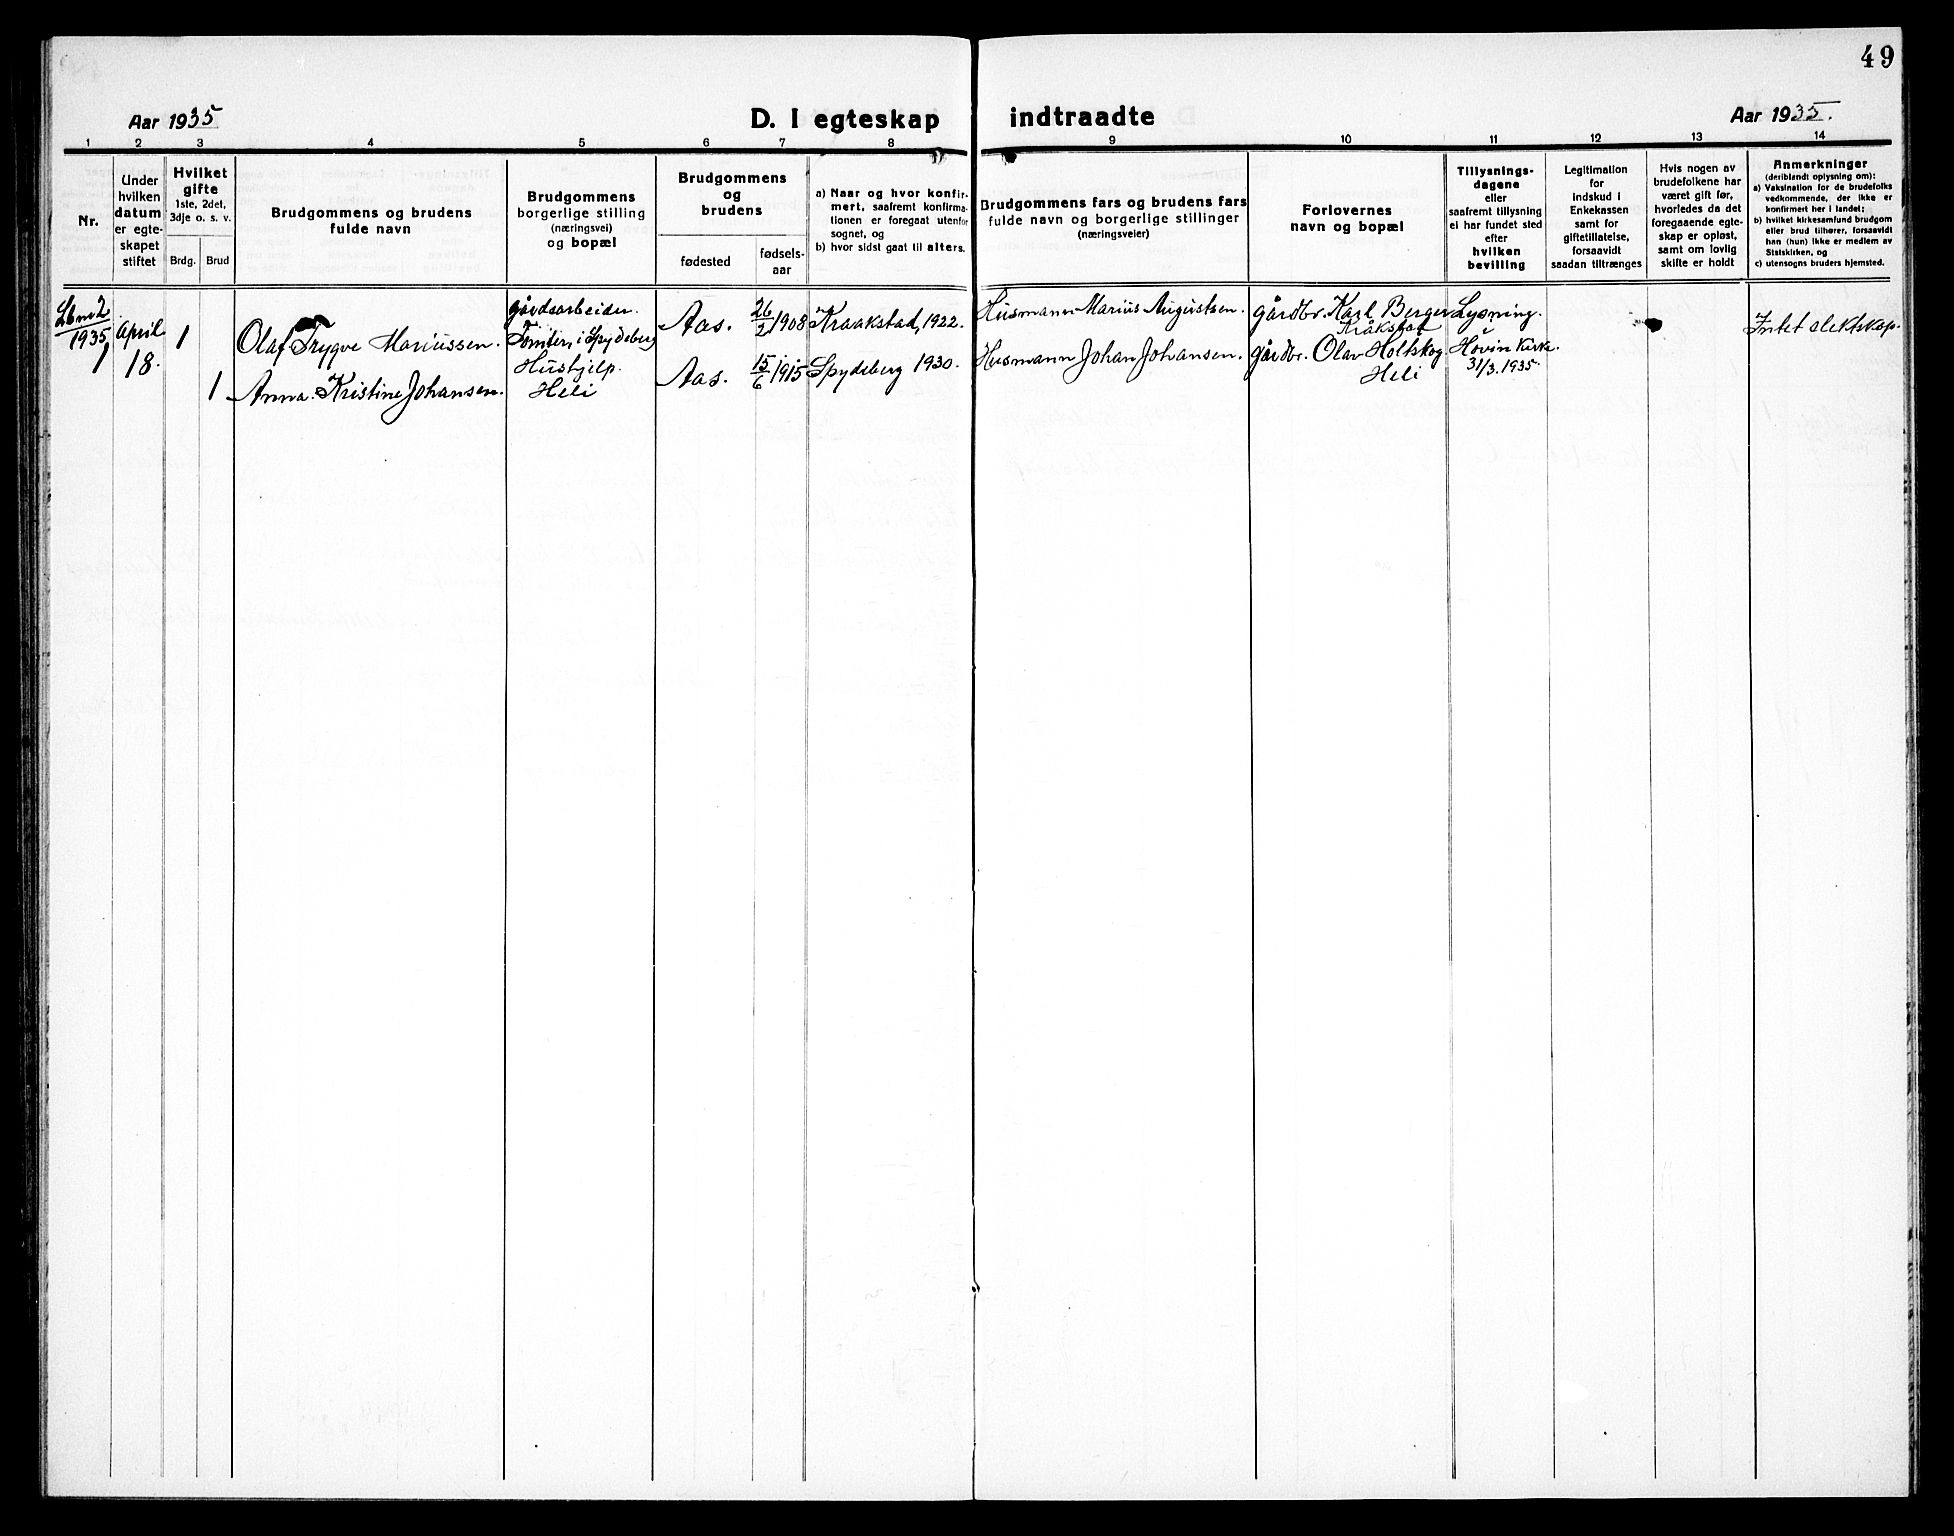 49
Aar 1935
D. I egteskap indtraadte
Aar 1935.
1 2 3 4 5 6 7 8 9 10 11 12 13 14
Nr.
Under
hvilken
datum
er egte-
skapet
stiftet
Hvilket
gifte
1ste, 2det,
3dje o. s. v.
Brdg. Brud
Brudgommens og brudens
fulde navn
Brudgommens
borgerlige stilling
(næringsvei)
og bopæl
Brudgommens
og
brudens
fødested
fødsels-
aar
a) Naar og hvor konfir-
mert, saafremt konfirma-
tionen er foregaat utenfor
sognet, og
b) hvor sidst gaat til alters.
Brudgommens fars og brudens fars
fulde navn og borgerlige stillinger
(næringsveier)
Forlovernes
navn og bopæl
Tillysnings-
dagene
eller
saafremt tillysning
ei har fundet sted
efter
hvilken
bevilling
Legitimation
for
indskud i
Enkekassen
samt for
giftetillatelse,
forsaavidt
saadan tiltrænges
Hvis nogen av
brudefolkene har
været gift før,
hvorledes da det
foregaaende egte-
skap er opløst,
samt om lovlig
skifte er holdt
Anmerkninger
(deriblandt oplysning om):
a) Vaksination for de brudefolks
vedkommende, der ikke er
konfirmert her i landet;
b) hvilket kirkesamfund brudgom
eller brud tilhører, forsaavidt
han (hun) ikke er medlem av
Statskirken, og
c) utensogns bruders hjemsted.
1935
1
April
18.
1
Olaf Trygve Mariussen.
gårdsarbeider.
Tomter i Spydeberg
Aas.
26/2 1908
Kraakstad, 1922.
Husmann Marius Augustsen.
gårdbr. Karl Berger
Kråkstad
Lysning.
Intet slektskap.
1
Anna Kristine Johansen.
Hushjelp.
Heli
Aas.
15/6 1915
Spydeberg 1930.
Husmann Johan Johansen.
gårdbr. Olav Holtskog
Heli
Hovin Kirke
31/3. 1935.